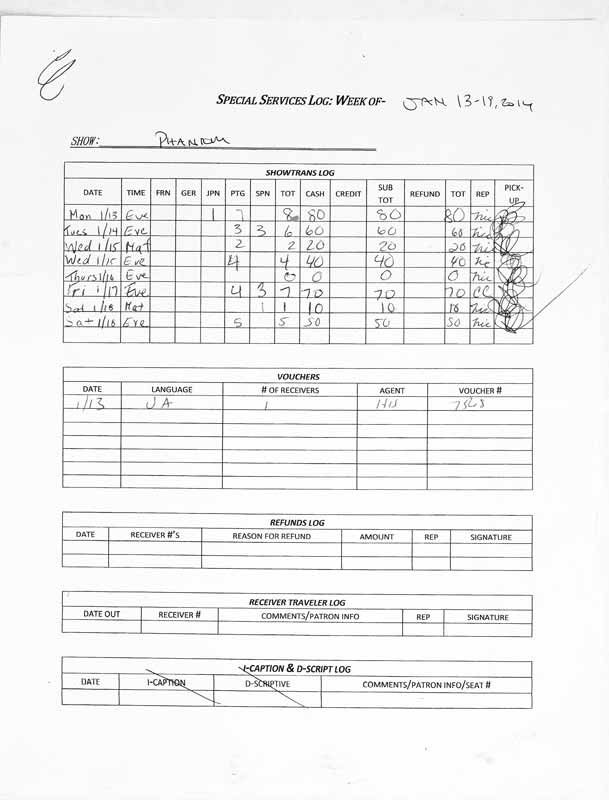 SPECIAL SERVICES LOG: WEEK OF- JAN 13-19, 2014
SHOW: PHANTOM
SHOWTRANS LOG
DATE TIME FRN GER JPN PTG SPN TOT CASH CREDIT SUB TOT REFUND TOT REP PICK-UP
Mon 1/13 Eve 1 7 8 80 80 80 Tric
Tues 1/14 Eve 3 3 6 60 60 60 Tric
Wed 1/15 Mat 2 2 20 20 20 Tric
Wed 1/15 Eve 4 4 40 40 40 Tric
Thurs 1/16 Eve 0 0 0 0 Tric
Fri 1/17 Eve 4 3 7 70 70 70 CC
Sat 1/18 Mat 1 1 10 10 10 Tric
Sat 1/18 Eve 5 5 50 50 50 Tric
VOUCHERS
DATE LANGUAGE # OF RECEIVERS AGENT VOUCHER #
1/13 JA 1 HIS
REFUNDS LOG
DATE RECEIVER #'S REASON FOR REFUND AMOUNT REP SIGNATURE
RECEIVER TRAVELER LOG
DATE OUT RECEIVER # COMMENTS/PATRON INFO REP SIGNATURE
I-CAPTION & D-SCRIPT LOG
DATE I-CAPTION D-SCRIPTIVE COMMENTS/PATRON INFO/SEAT #